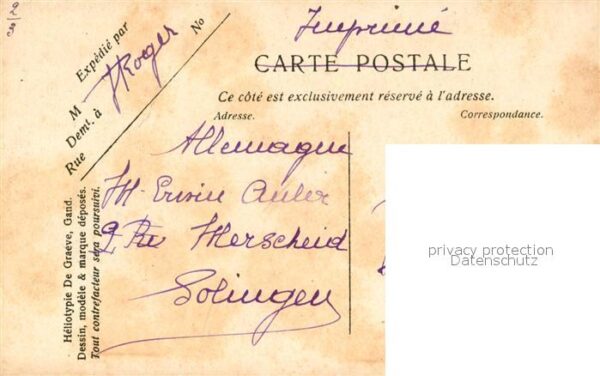 Imprimé
CARTE POSTALE
Ce côté est exclusivement réservé à l'adresse.
Adresse. Correspondance.
Expédié par
M
Demt. à Nº
Rue
Allemagne
Erwin
Merscheid
Solingen
Héliotypie De Graeve, Gand.
Dessin, modèle & marque déposés.
Tout contrefacteur sera poursuivi.
privacy protection
Datenschutz